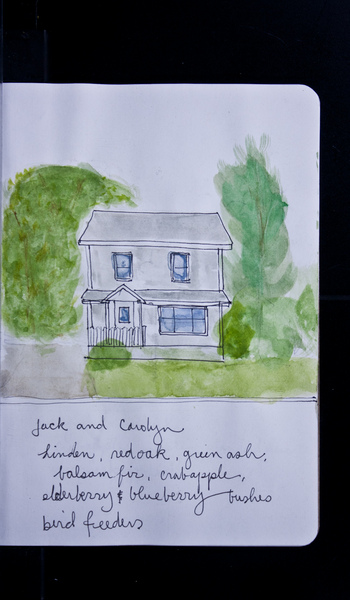 Jack and Carolyn
linden, red oak, green ash,
balsam fir, crabapple,
elderberry & blueberry bushes
bird feeders